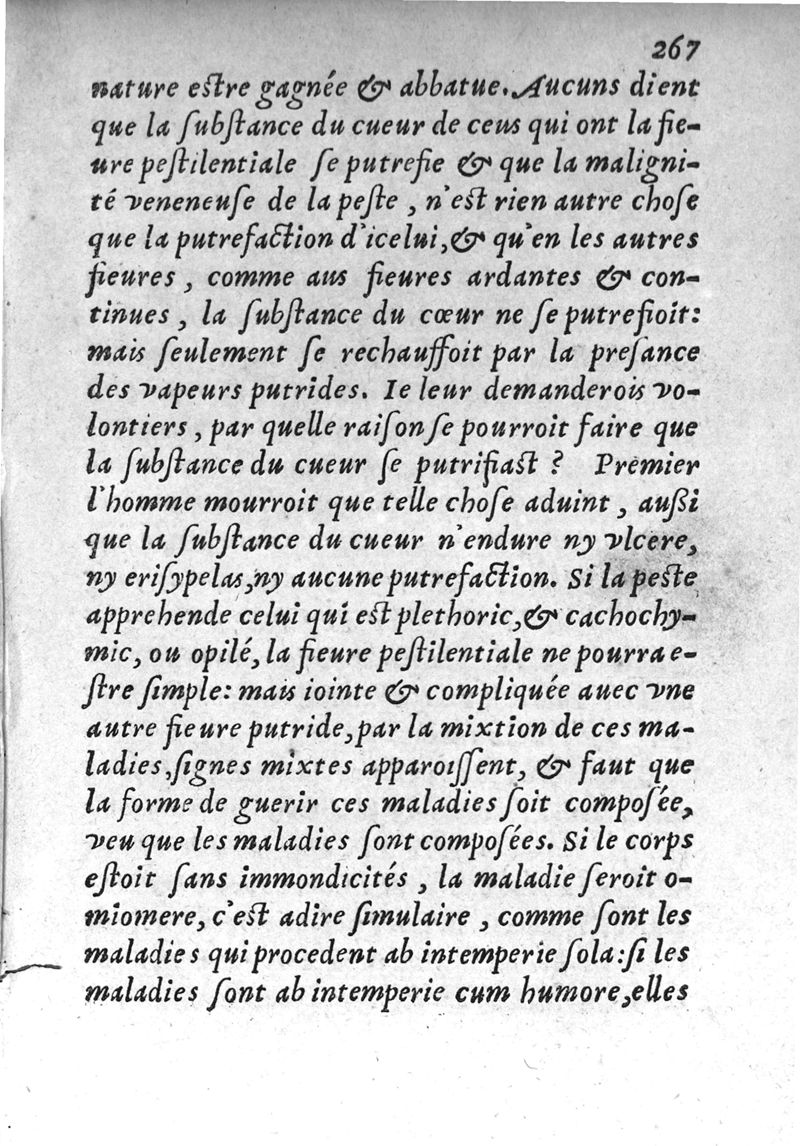 267
nature eſtre gagnée & abbatue. Aucuns dient
que la ſubſtance du cueur de ceus qui ont la fie-
ure peſtilentiale ſe putrefie & que la maligni-
té veneneuſe de la peſte , n'eſt rien autre choſe
que la putrefaction d'icelui,& qu'en les autres
fieures , comme aus fieures ardantes & con-
tinues , la ſubſtance du cœur ne ſe putrefioit:
mais ſeulement ſe rechauffoit par la preſance
des vapeurs putrides. Ie leur demanderois vo-
lontiers , par quelle raiſon ſe pourroit faire que
la ſubſtance du cueur ſe putrifiaſt ? Premier
l'homme mourroit que telle choſe aduint , außi
que la ſubſtance du cueur n'endure ny vlcere,
ny eriſypelas,ny aucune putrefaction. Si la peſte
apprehende celui qui eſt plethoric,& cachochy-
mic, ou opilé, la fieure peſtilentiale ne pourra e-
ſtre ſimple: mais iointe & compliquée auec vne
autre fieure putride,par la mixtion de ces ma-
ladies,ſignes mixtes apparoiſſent, & faut que
la forme de guerir ces maladies ſoit compoſée,
veu que les maladies ſont compoſées. Si le corps
eſtoit ſans immondicités , la maladie ſeroit o-
miomere, c'eſt adire ſimulaire , comme ſont les
maladies qui procedent ab intemperie ſola:ſi les
maladies ſont ab intemperie cum humore,elles